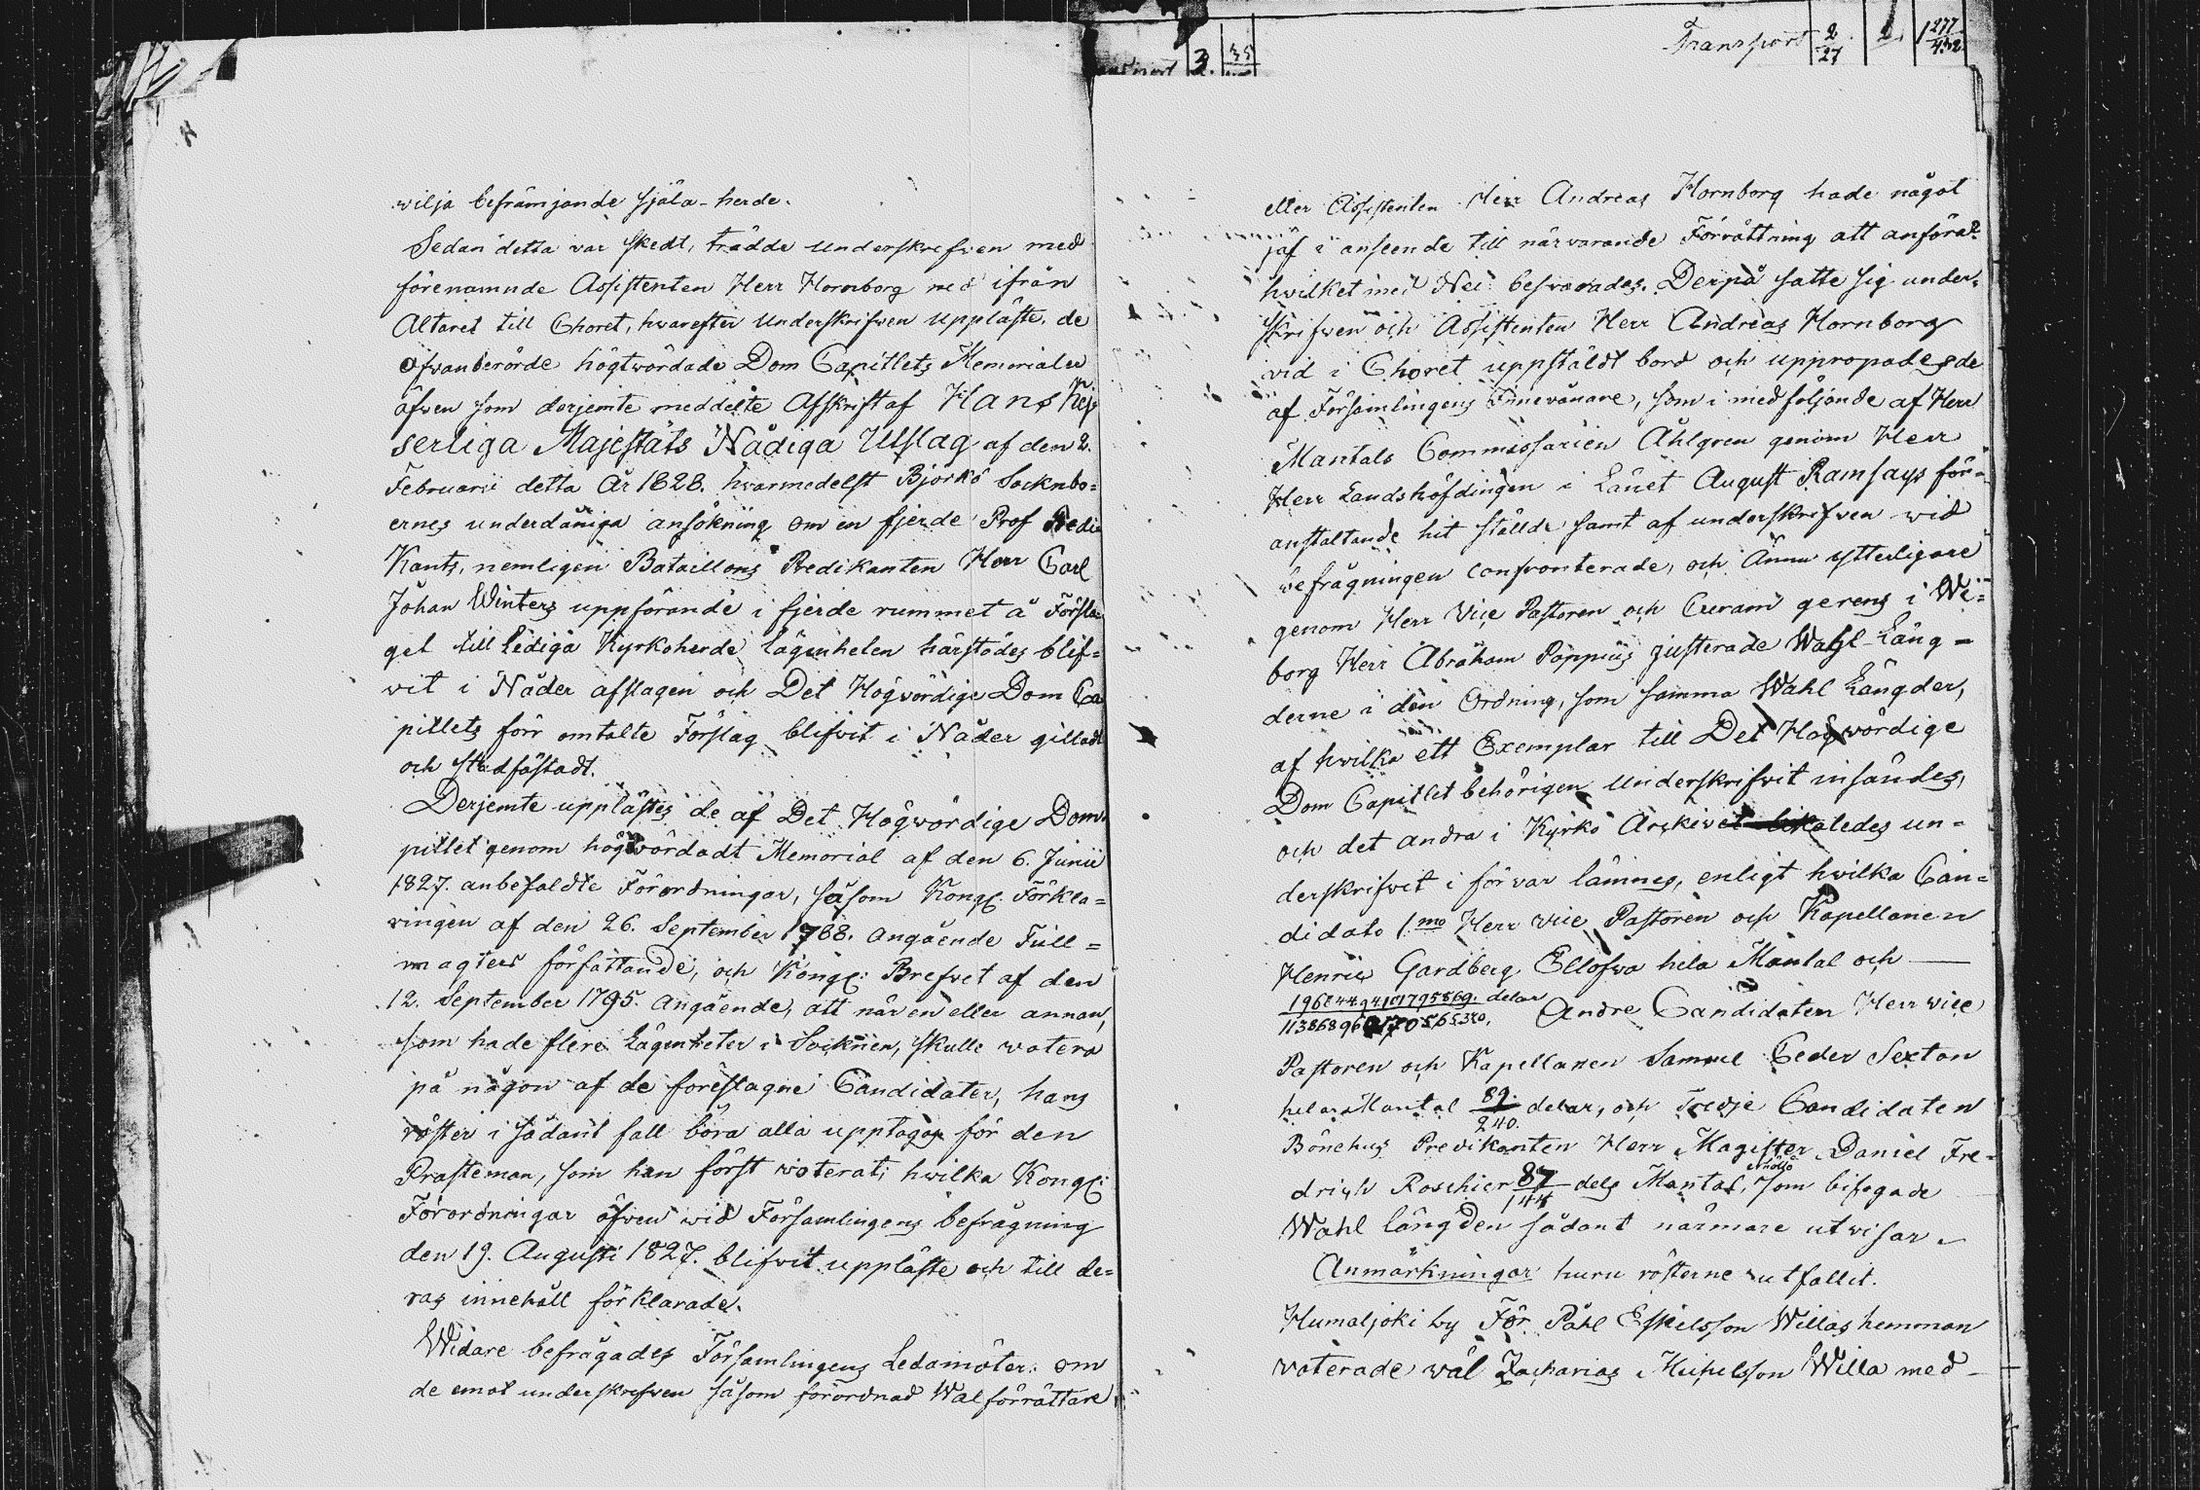 wilja befrämjande själa-herde.
Sedan detta var skedt, trädde underskrefven med
förenamnde Assistenten Herr Hornborg ned ifrån
Altaret till Choret, hwarefter Underskrifwen uppläste, de
ofwanberörde högtwördade Dom Capitlets Memorialer
äfven som derjemte meddelte Afskrift af Hans Kej
serliga Majestäts Nådiga Utslag af den 2.
Februarii detta År 1828. hvarmedelst Björkö Socknbo=
ernes underdåniga ansökning om en fjerde Prof Predi
Kants, nemligen Bataillons Predikanten Herr Carl
Johan Winters uppförande i fjerde rummet å Försla
get till Lediga Kyrkoherde Lägenheten härstädes blif=
vit i Nåder afslagen och Det Högvördige Dom Ca
pitlets förr omtalte Förslag blifvit i Nåder gilladt
och stadfästadt.
Derjemte upplästes de af Det Högwördige Dom
pitlet genom högtvördadt Memorial af den 6. Junii
1827. anbefaldte Förordningar, såsom Kongl. Förkla=
ringen af den 26. September 1788. angående Full=
magters författande, och Kongl: Brefvet af den
12. September 1795. angående, att när en eller annan,
som hade flere Lägenheter i Socknen, skulle votera
på någon af de föreslagne Candidater, hans
röster i sådant fall böra alla upptagas för den
Prästeman, som han först voterat; hwilka Kongl:
Förordningar äfven wid Församlingens befrågning
den 19. Augusti 1827. blifvit uppläste och till de=
ras innehåll förklarade.
Widare befrågades Församlingens Ledamöter: om
de emot underskrefven såsom förordnad Walförrättare
Transport 2/27 2 1 277/432
3. 35
eller Assistenten Herr Andreas Hornborg hade något
jäf i anseende till närvarande Förrättning att anföra?
hvilket med Nei besvarades. Derpå satte sig under=
skrifwen och Assistenten Herr Andreas Hornborg
vid i Choret uppstäldt bord och uppropades de
af Församlingens Innevånare, som i medföljande af Herr
Mantals Commissarien Åhlgren genom Herr
Herr Landshöfdingen i Länet August Ramsays för=
anstaltande hit stälde samt af underskrifwen wid
befrågningen confronterade, och Ännu ytterligare
genom Herr Vice Pastoren och Curam gerens i Wi=
borg Herr Abraham Poppius justerade Wahl-Läng=
derne i den Ordning, som samma Wahl Längder,
af hwilka ett Exemplar till Det Högwördige
Dom Capitlet behörigen Underskrifvit insändes,
och det andra i Kyrko Arskivet likaledes un=
derskrifvit i förvar lämnes, enligt hvilka Can=
didato 1.mo Herr vice Pastoren och Kapellanen
Henric Gardberg Ellofwa hela Mantal och
delar Andre Candidaten Herr vice
Pastoren och Kapellanen Samuel Ceder Sexton
hela Mantal 89./240. delar, och Tredje Candidaten
Bönehus Predikanten Herr Magister Daniel Fre=
drich Roschier 87/144 dels Mantal, erhölls som bifogade
Wahl längden sådant närmare utwisar.
Anmärkningar huru rösterne utfallit.
Humaljoki by För Påhl Eskilsson Willas hemman
voterade väl Zacharias Michelsson Willa med